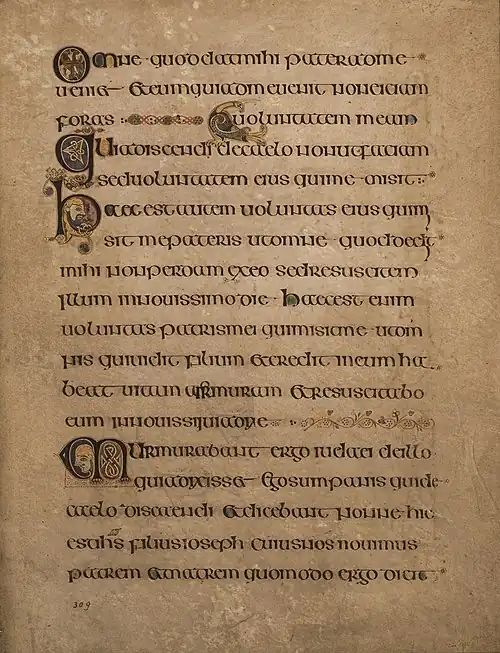 Omne quod dat mihi pater ad me
veniet et eum qui ad me venit non eiciam
foras
quia discendi de caelo non ut faciam voluntatem meam
sed voluntatem eius qui me misit
haec est autem voluntas eius qui mi
sit me pateris ut omne quod dedit
mihi non perdam ex eo sed resuscitem
illum in novissimo die haec est enim
voluntas patris mei qui misit me ut om
nis qui vidit filium et credit in eum ha
beat vitam murmuram et resuscitabo
eum in novissimo die
Murmurabant ergo iudaei de illo
quia dixisset ego sum panis qui de
caelo discendi et dicebant nonne hic
est ihs filius ioseph cuius nos novimus
patrem et matrem quomodo ergo dicit
309